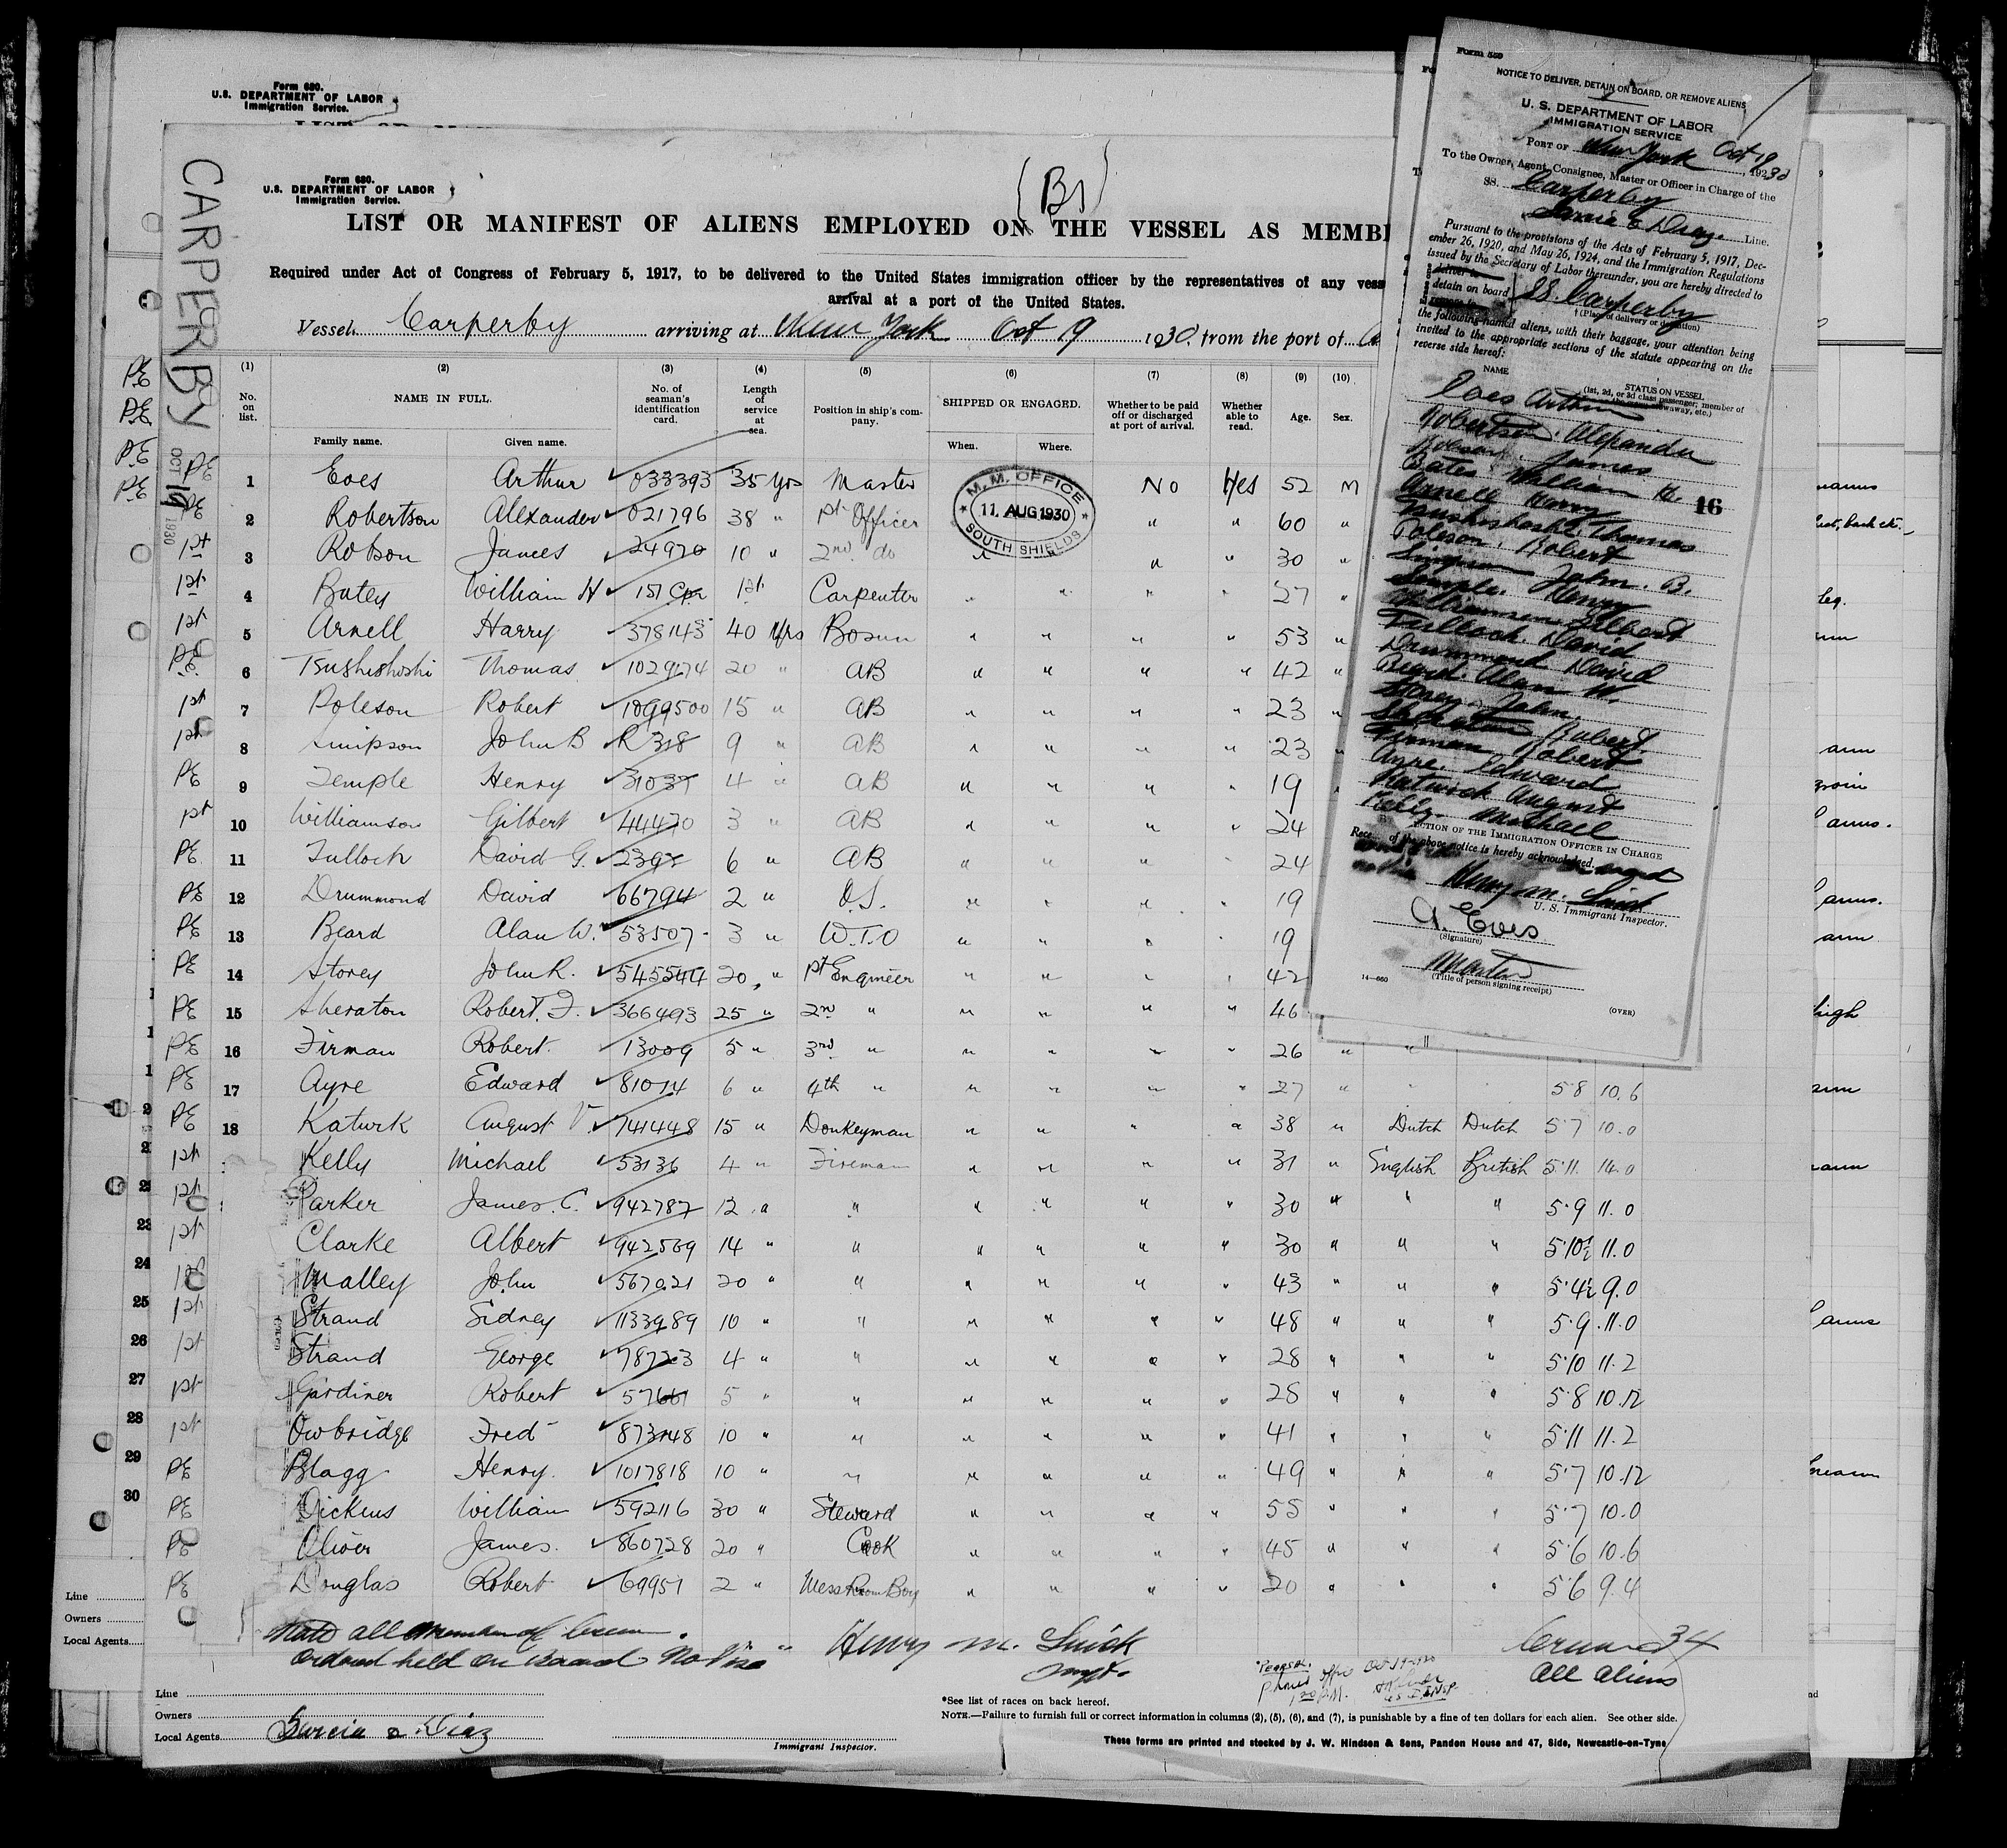 Form 680.
U.S. DEPARTMENT OF LABOR
Immigration Service.
CARPERBY OCT 19 1930
Form 680.
U.S. DEPARTMENT OF LABOR
Immigration Service.
(B1)
LIST OR MANIFEST OF ALIENS EMPLOYED ON THE VESSEL AS MEMB
Required under Act of Congress of February 5, 1917, to be delivered to the United States immigration officer by the representatives of any vess
arrival at a port of the United States.
Vessel Carperby arriving at New York Oct 19 1930, from the port of
(1) (2) (3) (4) (5) (6) (7) (8) (9) (10)
No. on list. NAME IN FULL. No. of seaman's identification card. Length of service at sea. Position in ship's company. SHIPPED OR ENGAGED. Whether to be paid off or discharged at port of arrival. Whether able to read. Age. Sex.
Family name. Given name. When. Where.
M. M. OFFICE
11. AUG 1930
SOUTH SHIELDS
PE 1 Eves Arthur 033393 35 Yrs Master No Yes 52 M
PE 2 Robertson Alexander 021796 38 " 1st Officer " " 60 "
1st 3 Robson James 24970 10 " 2nd do " " " " 30 "
1st 4 Batey William H 157 1st Carpenter " " " " 27 "
1st 5 Arnell Harry 378143 40 Yrs Bosun " " " " 53 "
PE 6 Tsushishoshi Thomas 1029174 20 " AB " " " " 42 "
1st 7 Poleson Robert 1099500 15 " AB " " " " 23 "
1st 8 Simpson John B R 318 9 " AB " " " " 23 "
PE 9 Temple Henry 31037 4 " AB " " " " 19
1st 10 Williamson Gilbert 44470 3 " AB " " " " 24
PE 11 Tulloch David G. 2 6 " AB " " " " 24
PE 12 Drummond David 66794 2 " O.S. " " " " 19
PE 13 Beard Alan W. 53507 3 " W.T.O " " " 19
PE 14 Storey John R. 545544 20 " 1st Engineer " " " " 42
PE 15 Sheraton Robert. F. 366493 25 " 2nd " " " " " 46
PE 16 Firman Robert. 13009 5 " 3rd " " " " " 26 " "
PE 17 Ayre Edward 81014 6 " 4th " " " " " 27 " " 5 8 10.6
PE 18 Katurk August V. 741448 15 " Donkeyman " " " " 38 " Dutch Dutch 5 7 10.0
1st Kelly Michael 53136 4 " Fireman " " " " 31 " English British 5.11. 14.0
1st Parker James. C. 942787 12 " " " " " " 30 " " " 5.9 11.0
1st Clarke Albert 942569 14 " " " " " " 30 " " " 5.10½ 11.0
1st Malley John 567021 20 " " " " " " 43 " " " 5.4½ 9.0
1st Strand Sidney 1133989 10 " " " " " " 48 " " " 5.9 11.0
1st Strand George 78723 4 " " " " " " 28 " " " 5.10 11.2
1st Gardiner Robert 57661 5 " " " " " " 28 " " " 5.8 10.12
1st Owbridge Fred 873148 10 " " " " " " 41 " " " 5.11 11.2
PE Blagg Henry. 1017818 10 " " " " " " 49 " " " 5.7 10.12
PE Dickens William 592116 30 " Steward " " " " 55 " " " 5.7 10.0
PE Oliver James. 860728 20 " Cook " " " " 45 " " " 5.6 10.6
PE Douglas Robert 69951 2 " Mess Room Boy " " " " 20 " " " 5.6 9.4
24
25
26
27
28
29
30
all members of crew
ordered held on board No Visa
Henry M.
Insp.
34
All aliens
Line
Owners
Local Agents
Line
Owners
Local Agents Garcia & Diaz
Immigrant Inspector.
*See list of races on back hereof.
NOTE.—Failure to furnish full or correct information in columns (2), (5), (6), and (7), is punishable by a fine of ten dollars for each alien. See other side.
These forms are printed and stocked by J. W. Hindson & Sons, Pandon House and 47, Side, Newcastle-on-Tyne
Form 559
NOTICE TO DELIVER, DETAIN ON BOARD, OR REMOVE ALIENS
U. S. DEPARTMENT OF LABOR
IMMIGRATION SERVICE
PORT OF New York Oct 19, 1930
To the Owner, Agent, Consignee, Master or Officer in Charge of the
SS. Carperby
Garcia & Diaz Line.
Pursuant to the provisions of the Acts of February 5, 1917, Dec-
ember 26, 1920, and May 26, 1924, and the Immigration Regulations
issued by the Secretary of Labor thereunder, you are hereby directed to
deliver to
detain on board SS. Carperby
remove to
†(Place of delivery or detention)
the following-named aliens, with their baggage, your attention being
invited to the appropriate sections of the statute appearing on the
reverse side hereof:
NAME STATUS ON VESSEL
(1st, 2d, or 3d class passenger; member of
Eves Arthur
Robertson. Alexander
Robson. James
Batey William H.
Arnell Harry
16
Tsushishoshi Thomas
Poleson. Robert
Simpson John. B.
Temple. Henry
Williamson Gilbert
Tulloch. David
Drummond David
Beard. Alan W.
Storey. John
Sheraton Robert
Firman Robert
Ayre. Edward
Katurk August
Kelly. Michael
BY DIRECTION OF THE IMMIGRATION OFFICER IN CHARGE
of the above notice is hereby acknowledged.
Henry M.
U. S. Immigrant Inspector.
A. Eves
(Signature)
Master
(Title of person signing receipt)
14—660
(OVER)